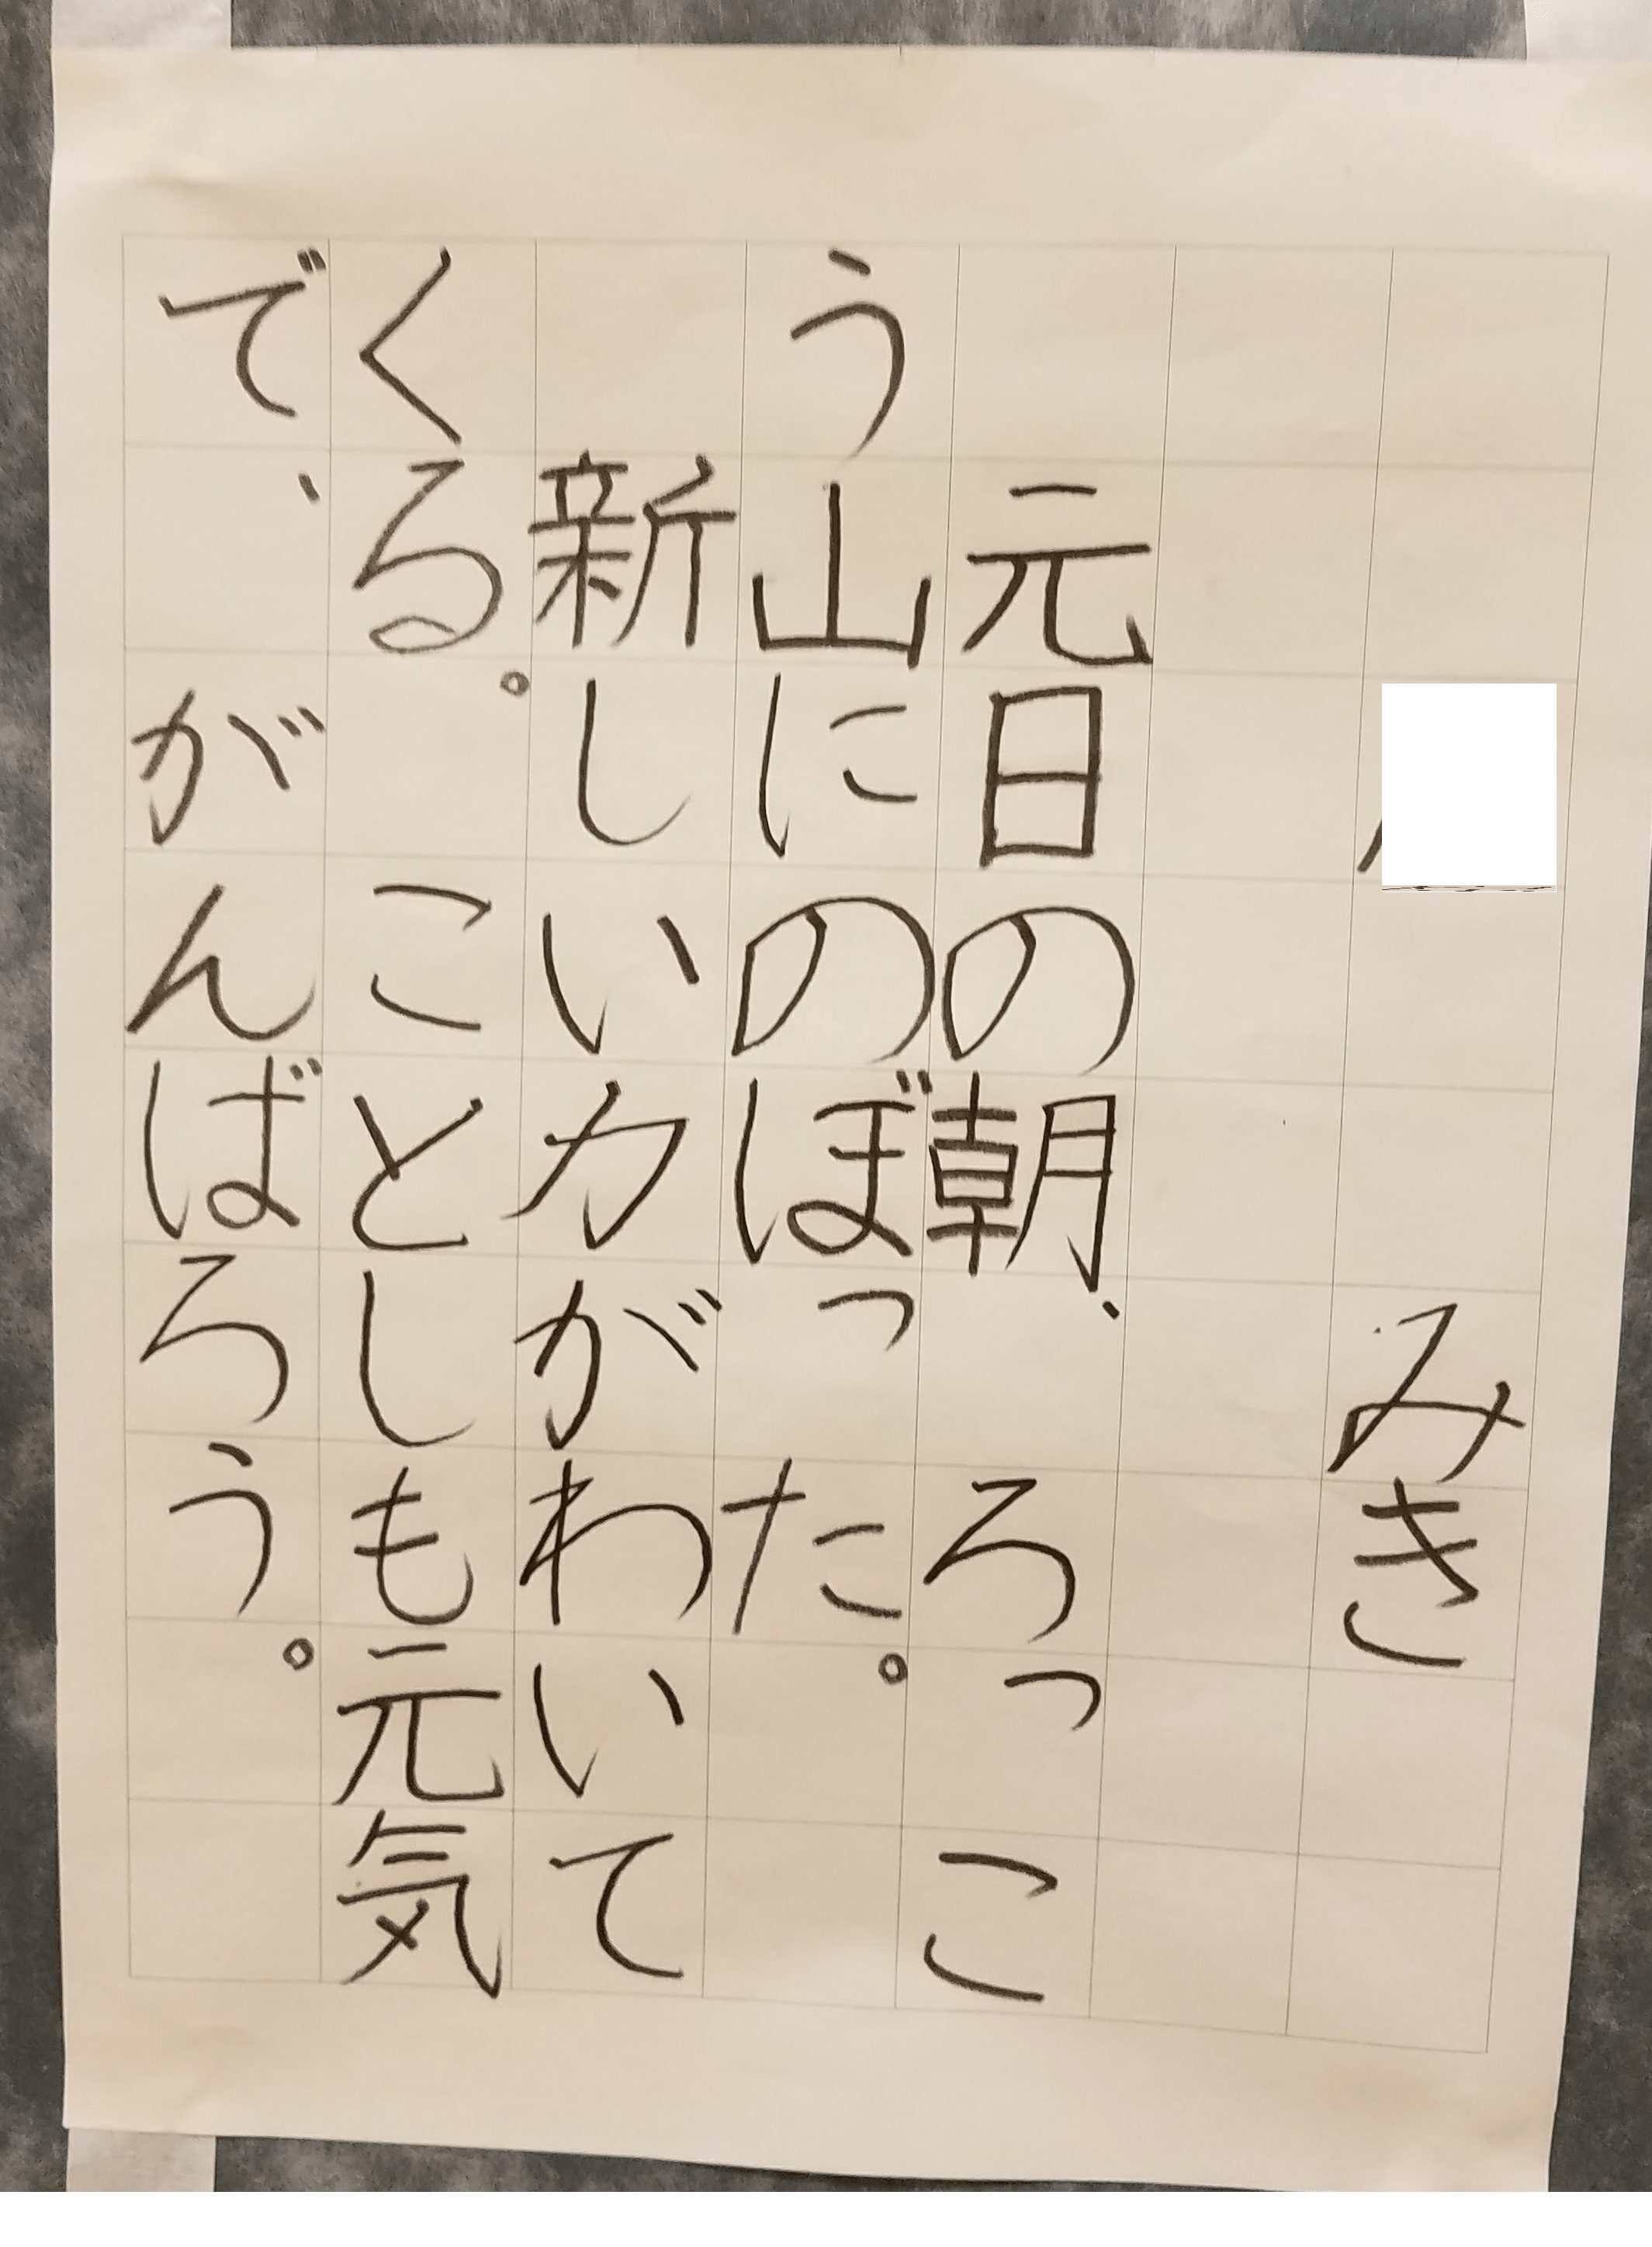 みき
元日の朝、ろっこ
う山にのぼった。
新しい力がわいて
くる。ことしも元気
で、がんばろう。